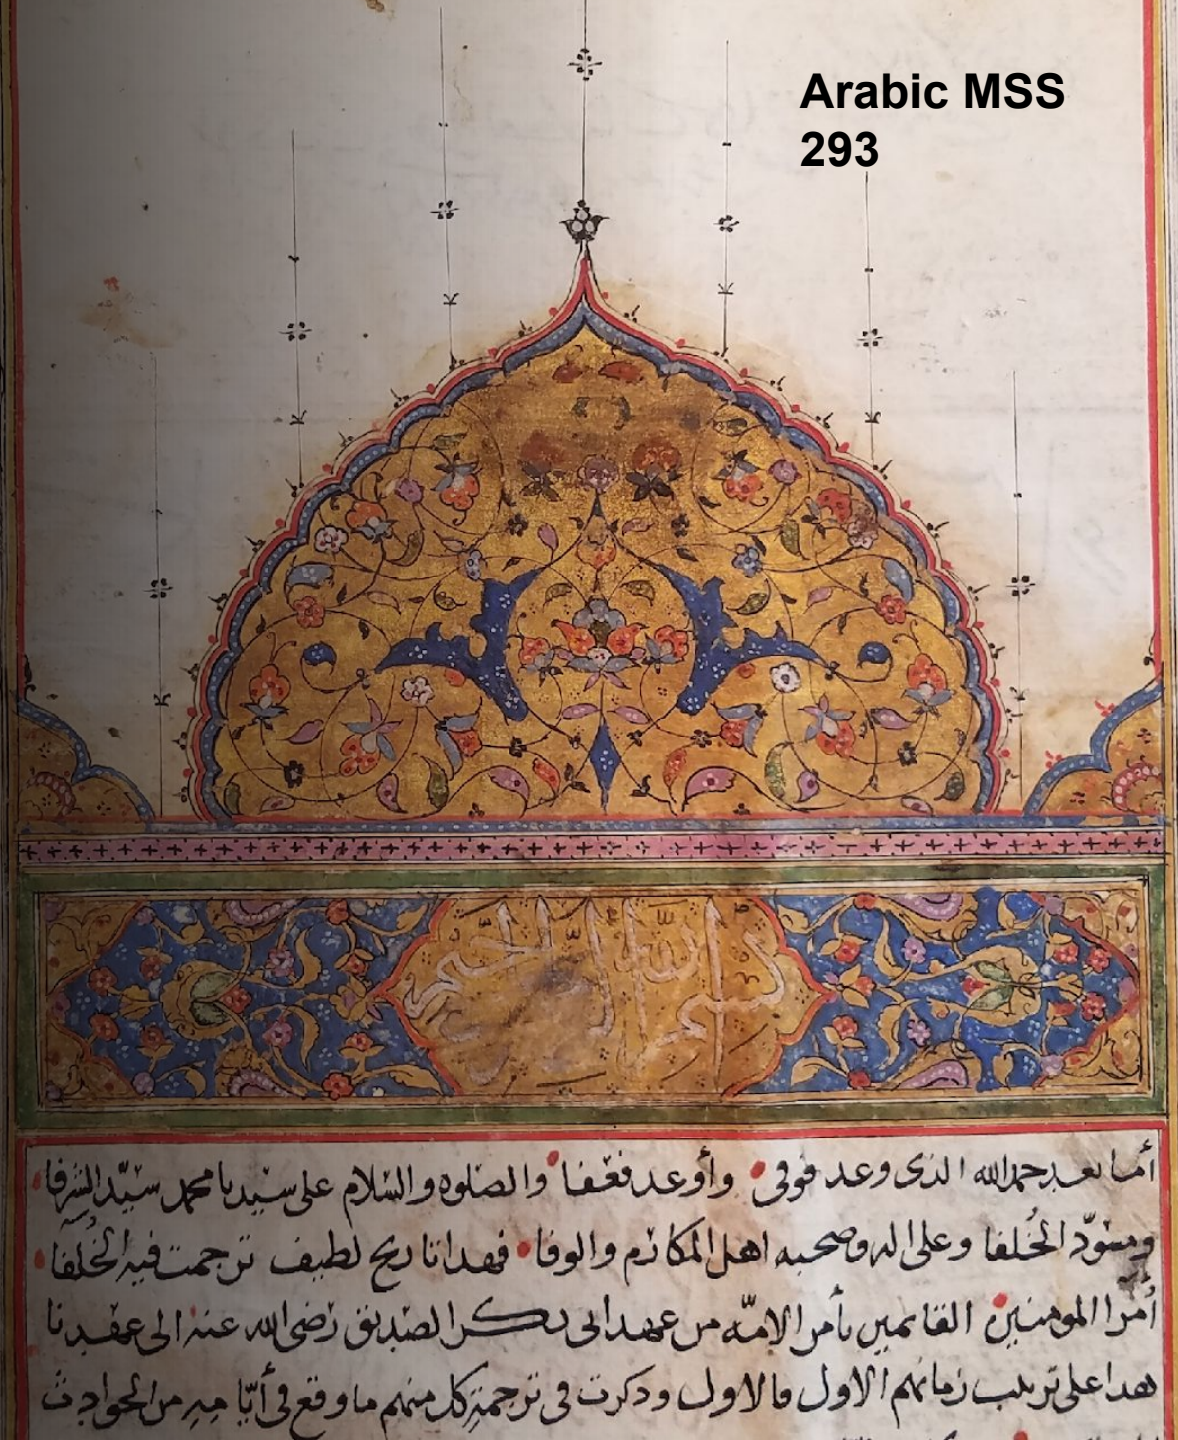 Arabic MSS
293
بسم الله الرحمن الرحيم
أما بعد حمد الله الذى وعد فوفى وأوعد فعفا والصلوه والسلام على سيدنا محمد سيّد الشرفا
ومسوّد الخُلفا وعلى اله وصحبه اهل المكارم والوفا فهدا تاريخ لطيف ترجمت فيه الخُلفا
أُمرا المومنين القايمين بأمر الامّه من عهد ابى بكر الصديق رضى الله عنه الى عهدنا
هدا على ترتيب زمانهم الاول فالاول ودكرت فى ترجمة كل منهم ما وقع فى أيّامه من الحوادث